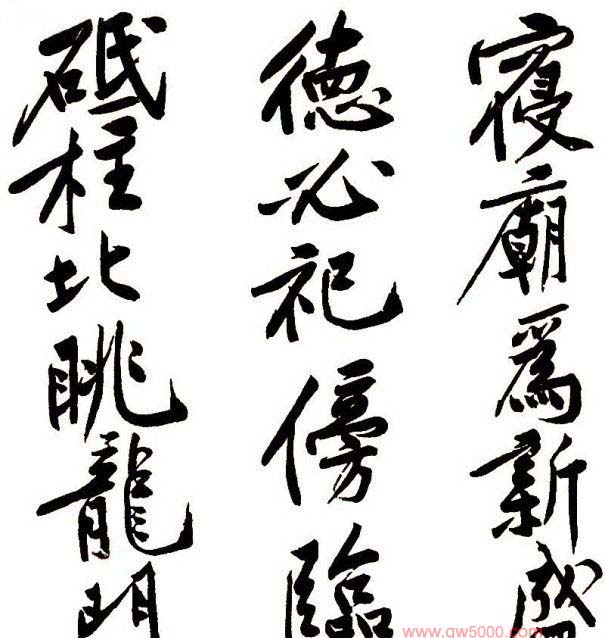 寢廟爲新盛
德必祀傍臨
砥柱北眺龍門